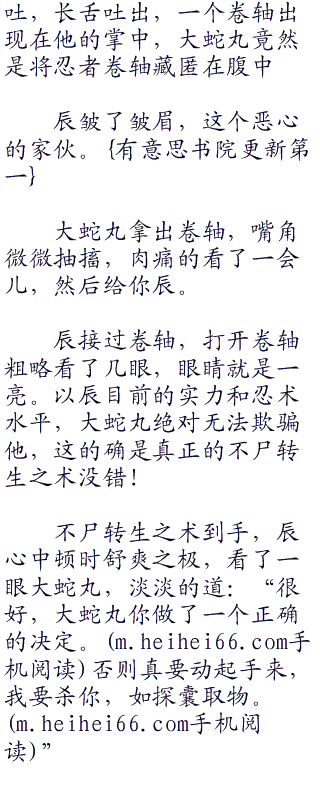 吐，长舌吐出，一个卷轴出
现在他的掌中，大蛇丸竟然
是将忍者卷轴藏匿在腹中
辰皱了皱眉，这个恶心
的家伙。{有意思书院更新第
一}
大蛇丸拿出卷轴，嘴角
微微抽搐，肉痛的看了一会
儿，然后给你辰。
辰接过卷轴，打开卷轴
粗略看了几眼，眼睛就是一
亮。以辰目前的实力和忍术
水平，大蛇丸绝对无法欺骗
他，这的确是真正的不尸转
生之术没错！
不尸转生之术到手，辰
心中顿时舒爽之极，看了一
眼大蛇丸，淡淡的道：“很
好，大蛇丸你做了一个正确
的决定。(m.heihei66.com手
机阅读)否则真要动起手来，
我要杀你，如探囊取物。
(m.heihei66.com手机阅
读)”